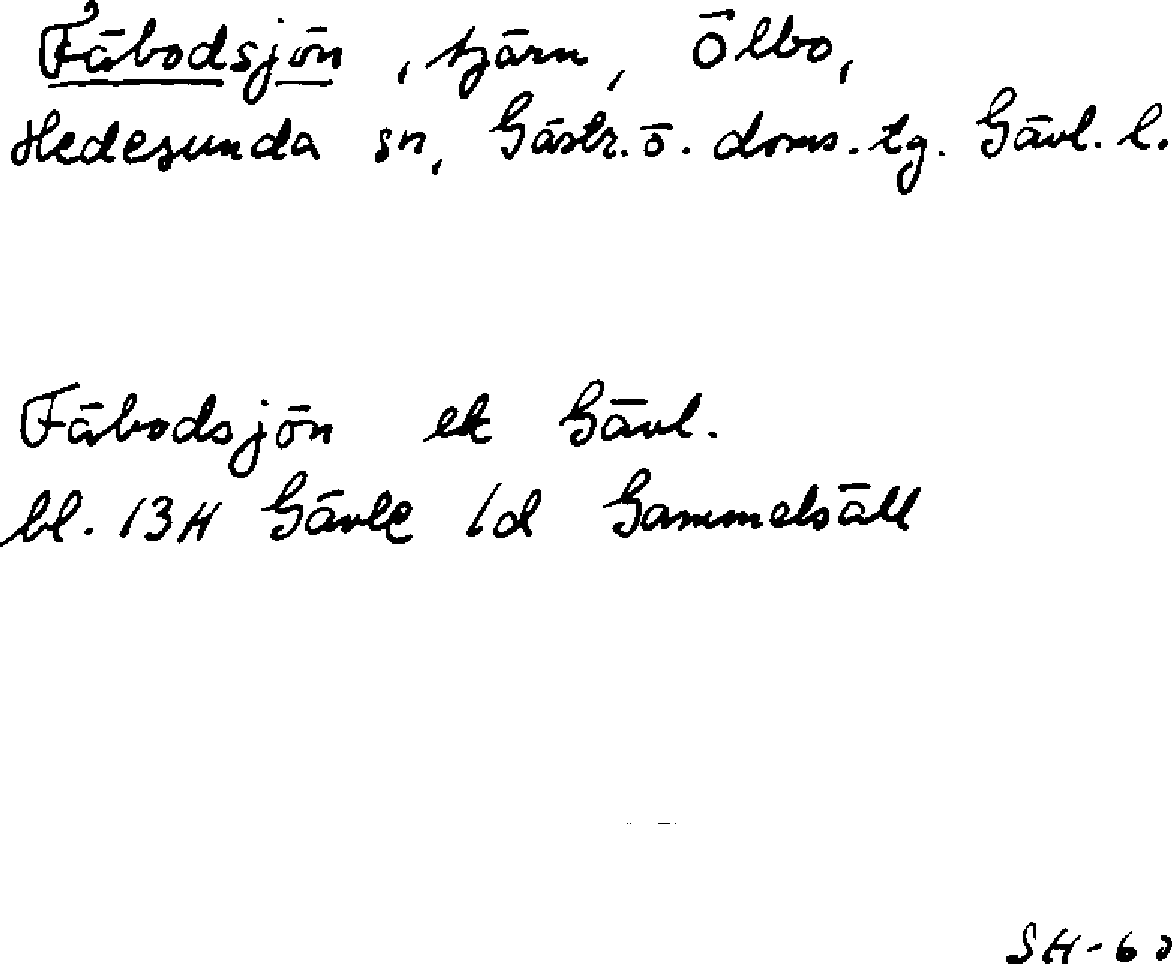 Fäbodsjön, tjärn, Ölbo,
Hedesunda sn, Gästr. ö. doms. tg. Gävl. l.
Fäbodsjön ek Gävl.
bl. 13H Gävle 1d Gammelsäll